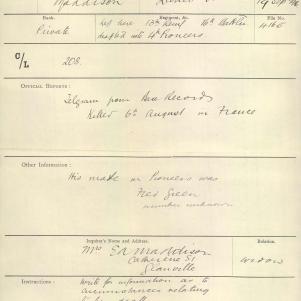 Maddison
19 Sept 16
Rank.
Regiment, &c.
File No.
Private
13th Reinf 16th Battln
4th Pioneers
C/L
208
OFFICIAL REPORTS:
Telegram from Base Records
Killed 6th August in France
Other Information:
His mate in Pioneers was
Fred Green
number unknown
Inquirer's Name and Address.
Relation.
Mrs E A Maddison
Catherine St
Granville
Widow
Instructions:
Write for information as to
circumstances relating
to his death